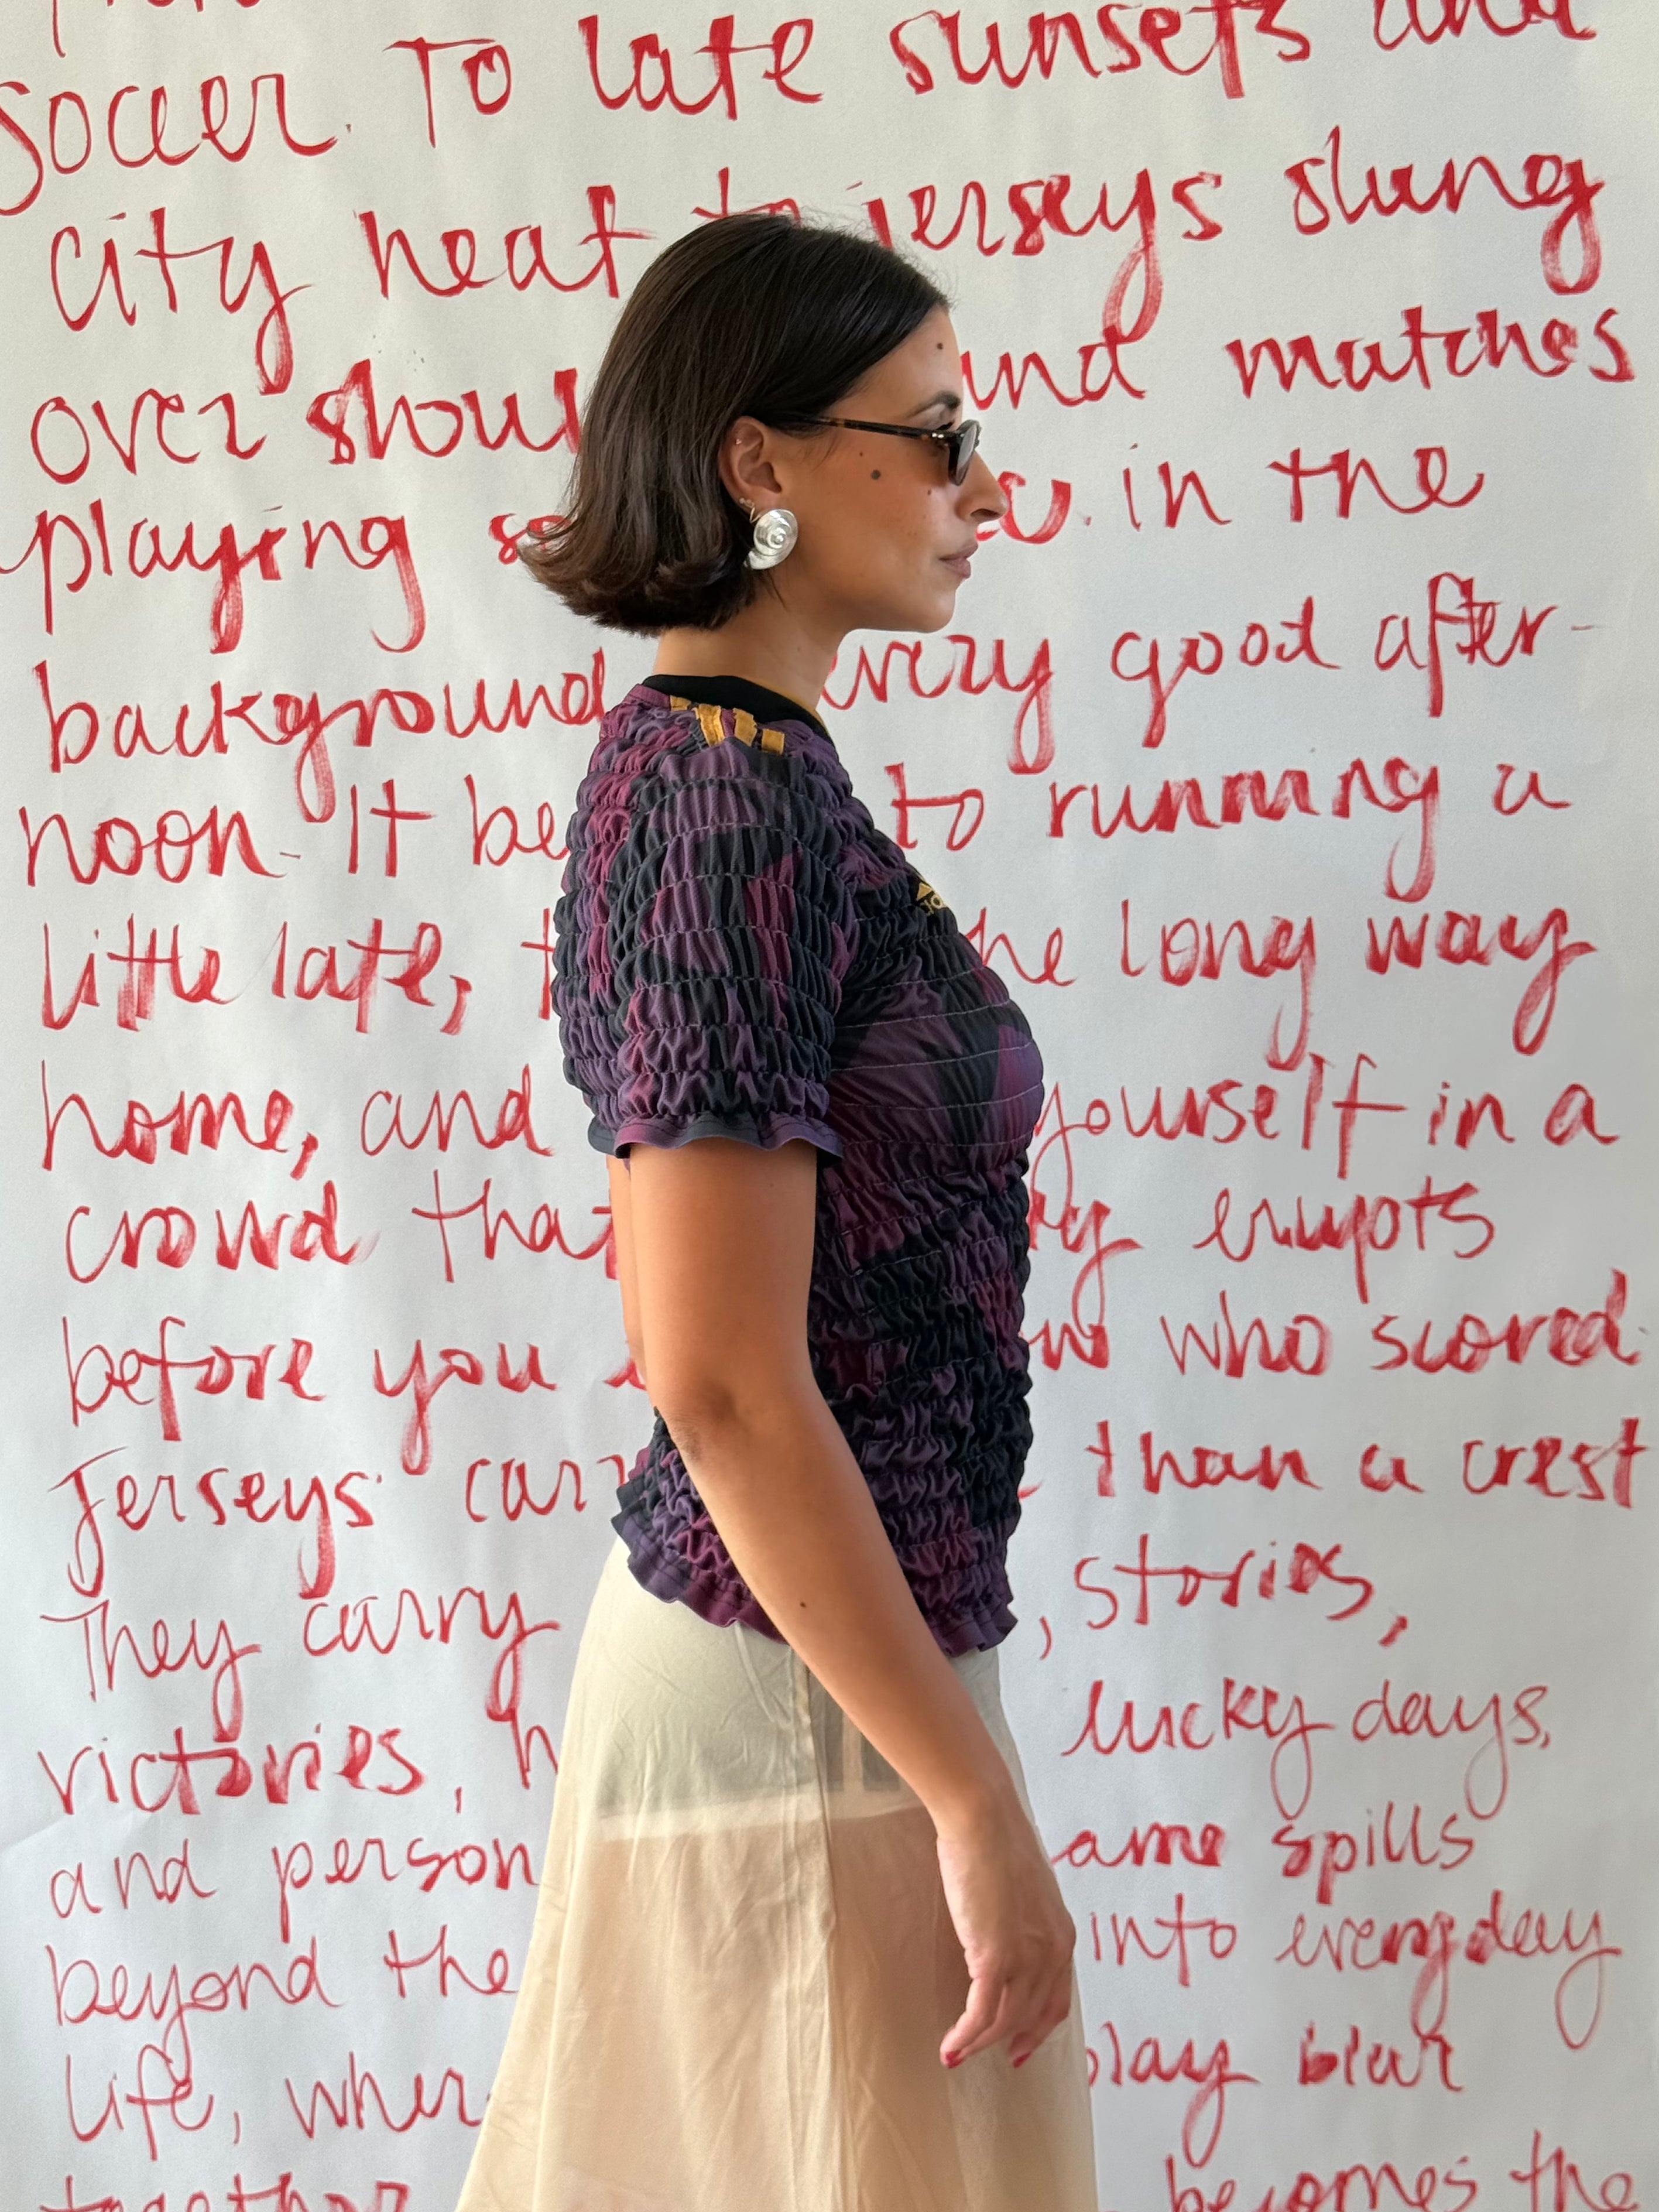 soccer. To late sunsets and
city heat to jerseys slung
over shoul und matches
playing in the
background very good after-
noon. It be to running a
little late, the long way
home, and yourself in a
crowd that erupts
before you who scored.
Jerseys carr than a crest
They carry , stories,
victories, h lucky days,
and person ame spills
beyond the into everyday
life, wher play blur
together becomes the